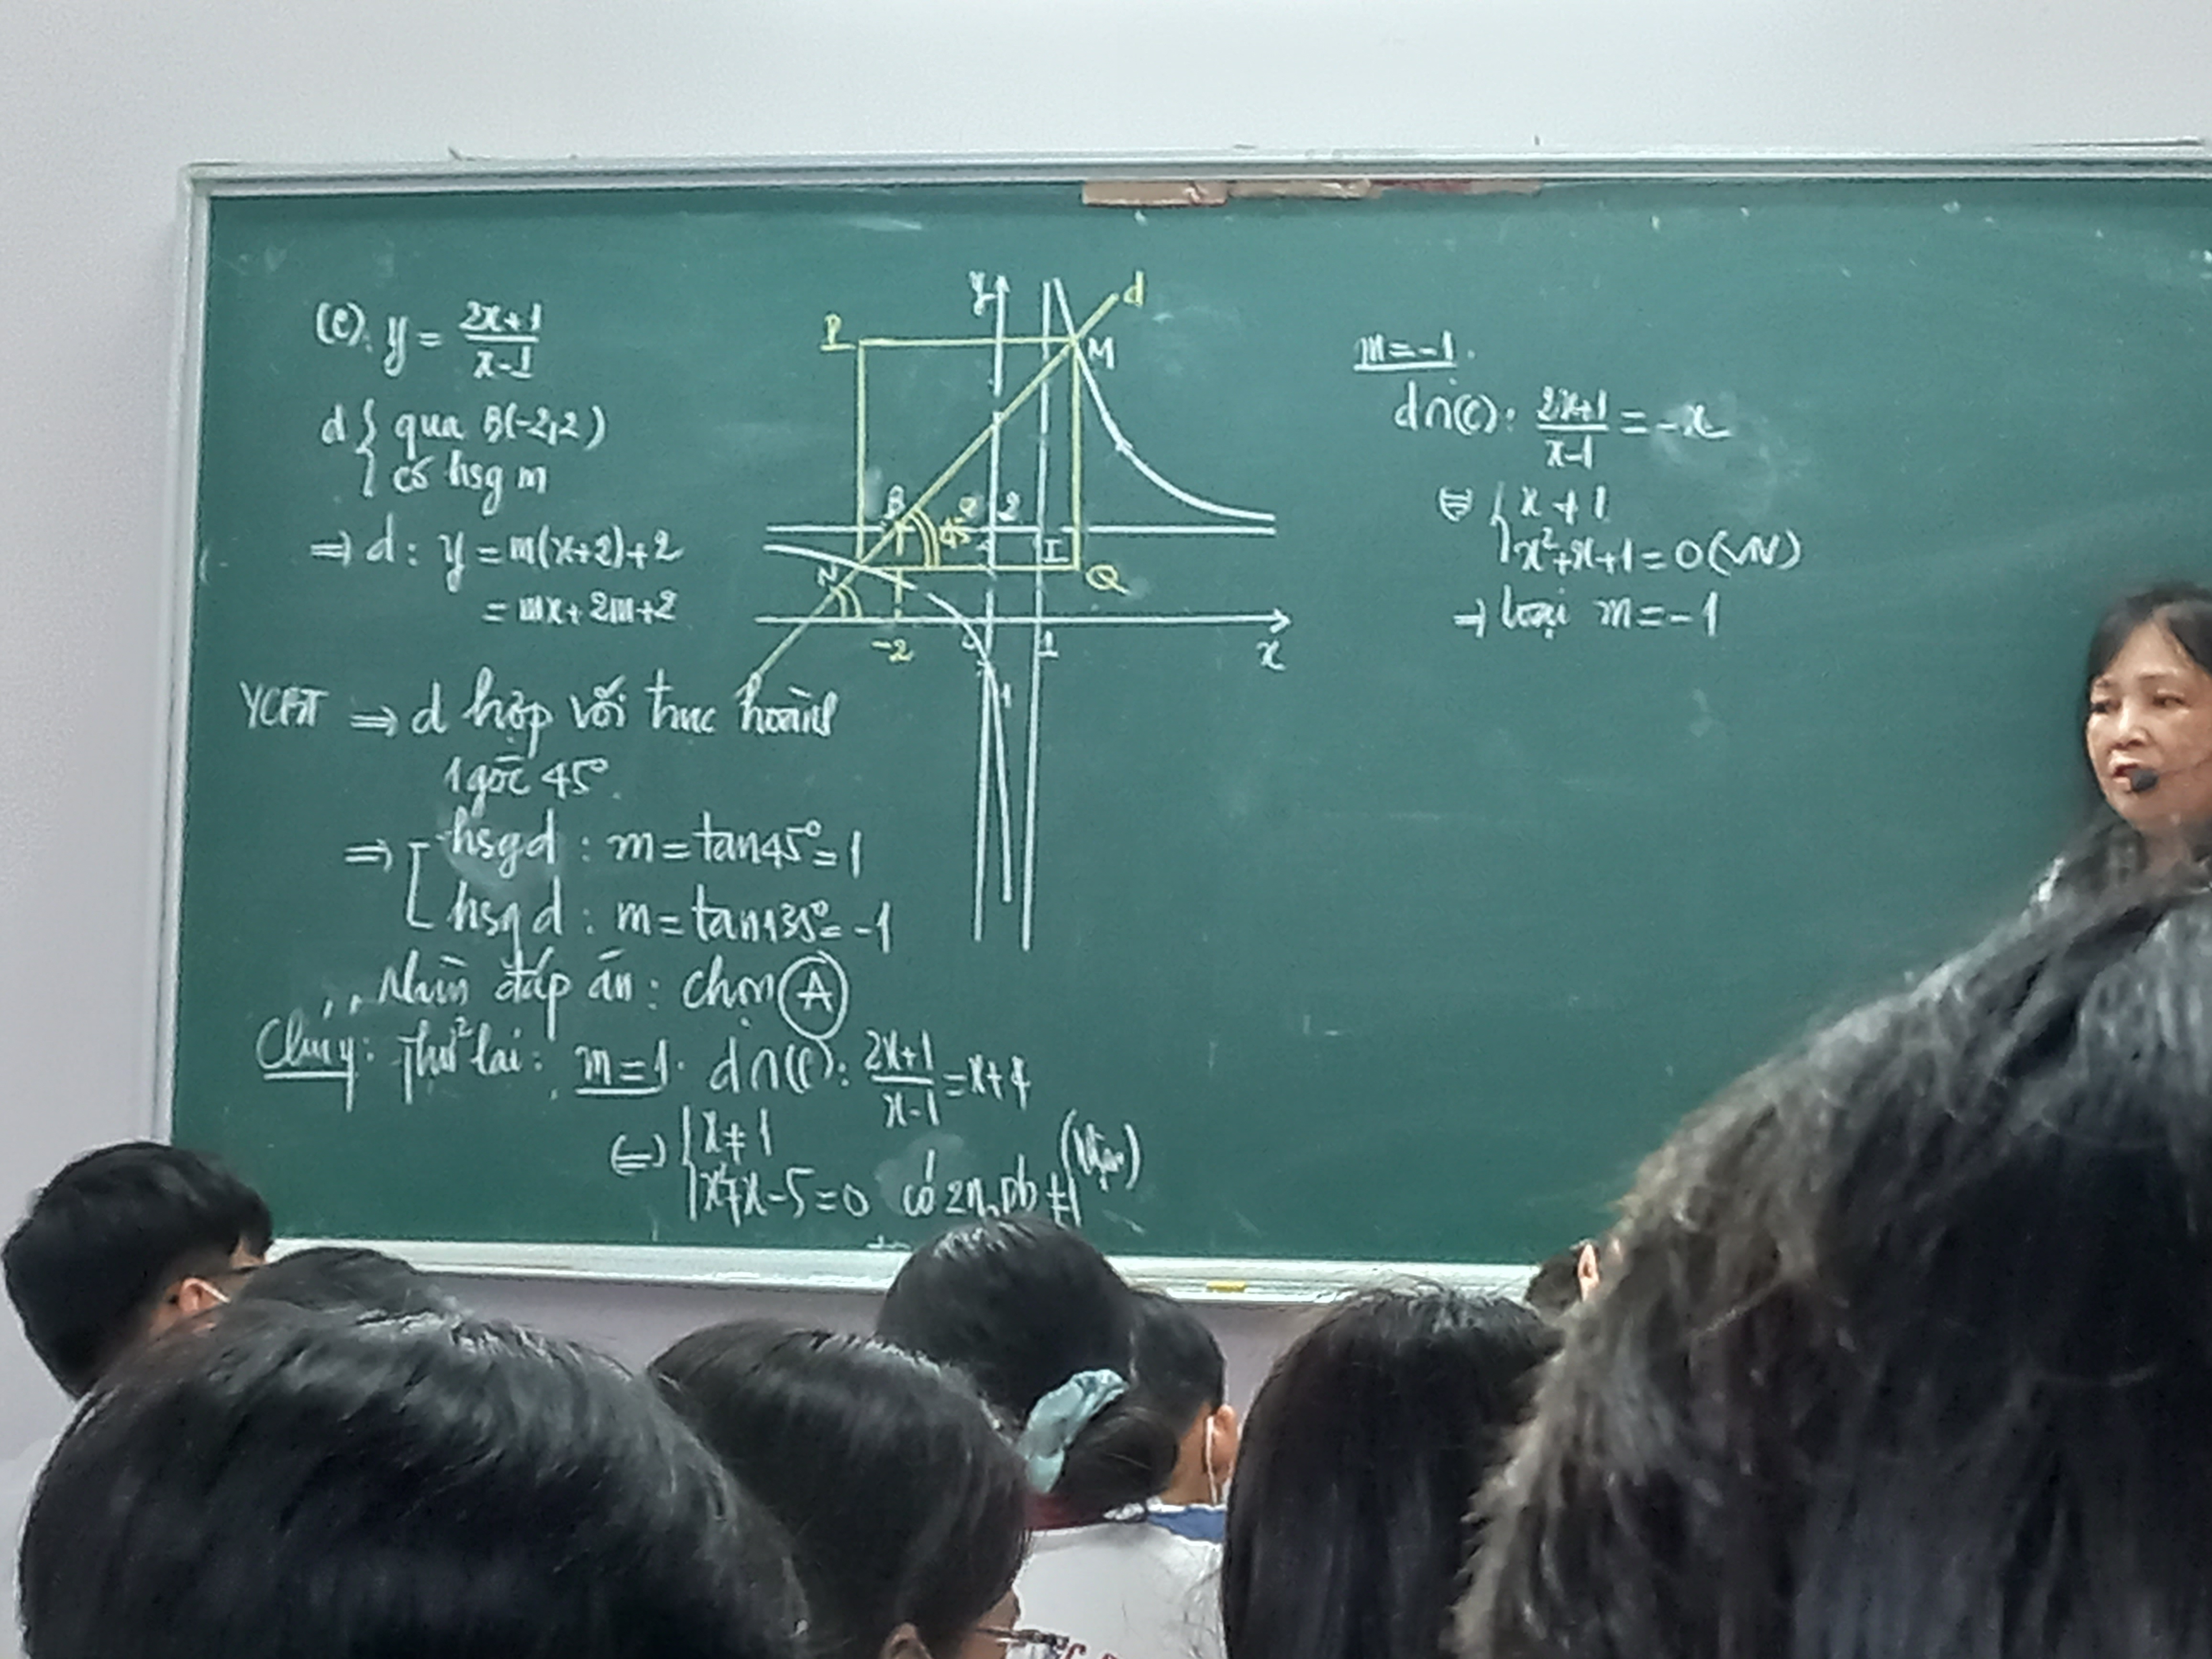 (C): y = 2x+1 / x-1
d { qua B(-2,2)
có hsg m
⇒ d: y = m(x+2)+2
= mx+2m+2
YCBT ⇒ d hợp với trục hoành
1 góc 45°
⇒ [ hsg d : m = tan45° = 1
hsg d : m = tan135° = -1
Nhìn đáp án: chọn A
Chú ý: Thử lại: m=1. d∩(C): 2x+1 / x-1 = x+4
⇔ { x ≠ 1
x²+x-5=0 có 2n pb ≠1 (Nhận)
y
d
P
M
B
45°
2
I
N
Q
-2
1
x
1
m=-1.
d∩(C): 2x+1 / x-1 = -x
⇔ { x ≠ 1
x²+x+1=0 (VN)
⇒ loại m=-1